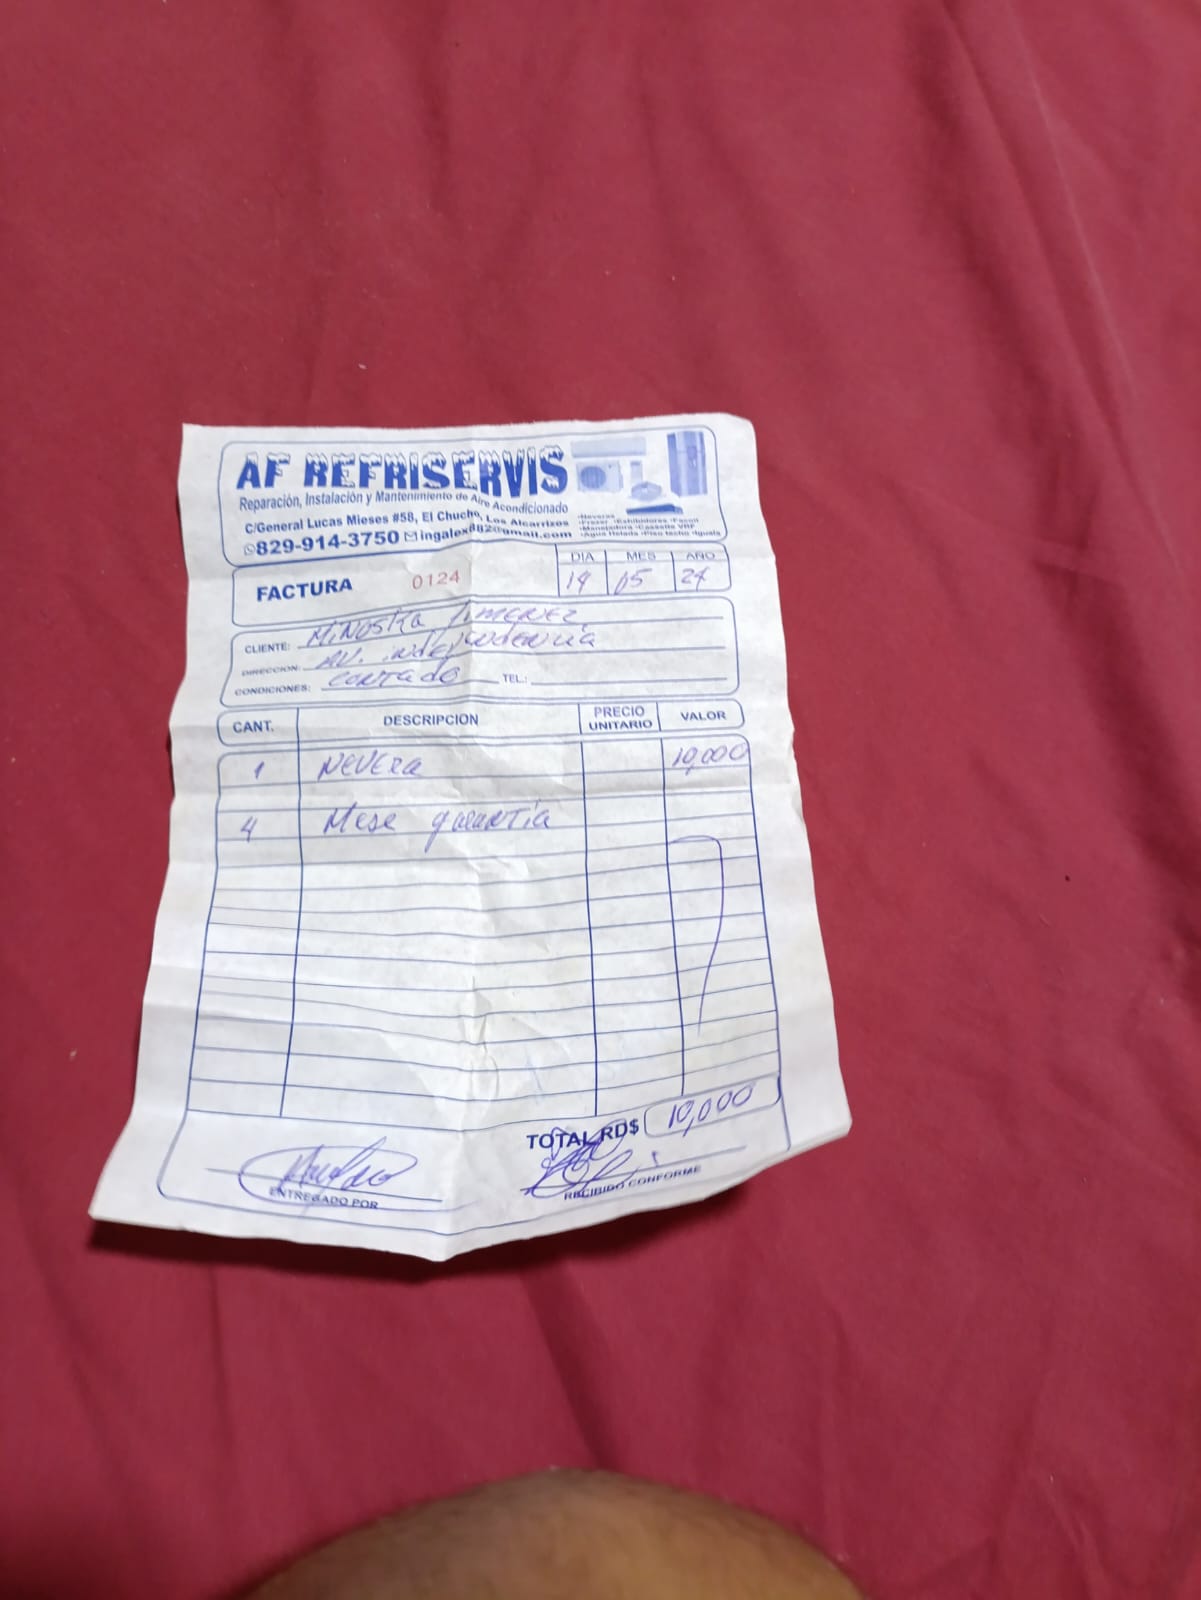 AF REFRISERVIS
Reparación, Instalación y Mantenimiento de Aire Acondicionado
C/General Lucas Mieses #58, El Chucho, Los Alcarrizos
829-914-3750 ingalex882@gmail.com
·Neveras
·Frezer ·Exhibidores ·Facnil
·Manejadora ·Cassette VRF
·Agua Helada ·Piso techo ·Iguala
FACTURA 0124
DIA MES AÑO
14 05 24
CLIENTE: Minoska Jimenez
DIRECCION: AV. independencia
CONDICIONES: contado TEL.:
CANT. DESCRIPCION PRECIO UNITARIO VALOR
1 Nevera 10,000
4 Mese garantia
TOTAL RD$ 10,000
ENTREGADO POR
RECIBIDO CONFORME